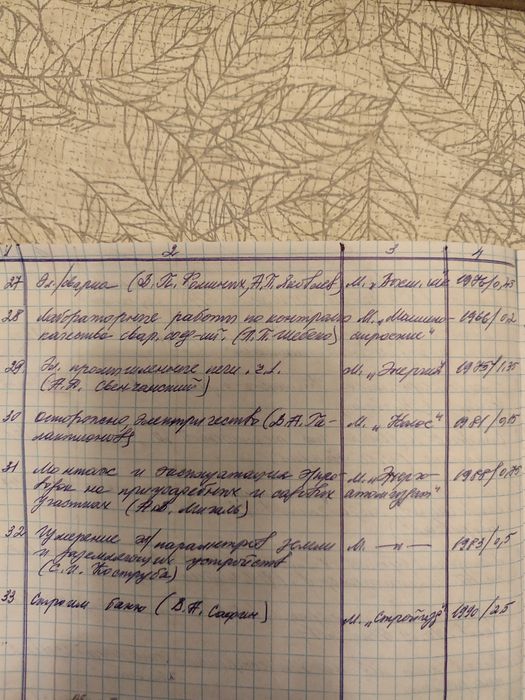 1 2 3 4
27 Эл/сварка (В.П. Фоминых, А.П. Яковлев) М. „Высш. шк" 1976/0,43
28 Лабораторные работы по контролю М. „Машино- 1966/0,2
качества свар. соед-ий. (П.П. Шебеко) строение"
29 Эл. промышленные печи. ч.1. М. „Энергия" 1975/1,35
(А.Д. Свенчанский)
30 Осторожно, электричество (В.А. Га- М. „Колос" 1981/
лактионов)
31 Монтаж и эксплуатация М. „Энерго- 1988/0,75
на и
участках (А.В. Михаль)
32 Измерение эл/параметров земли М. —"— 1983/0,5
и заземляющих устройств
(Е.И. Коструба)
33 Строим баню (В.А. Сафин) М. „Стройизд" 1990/2,5